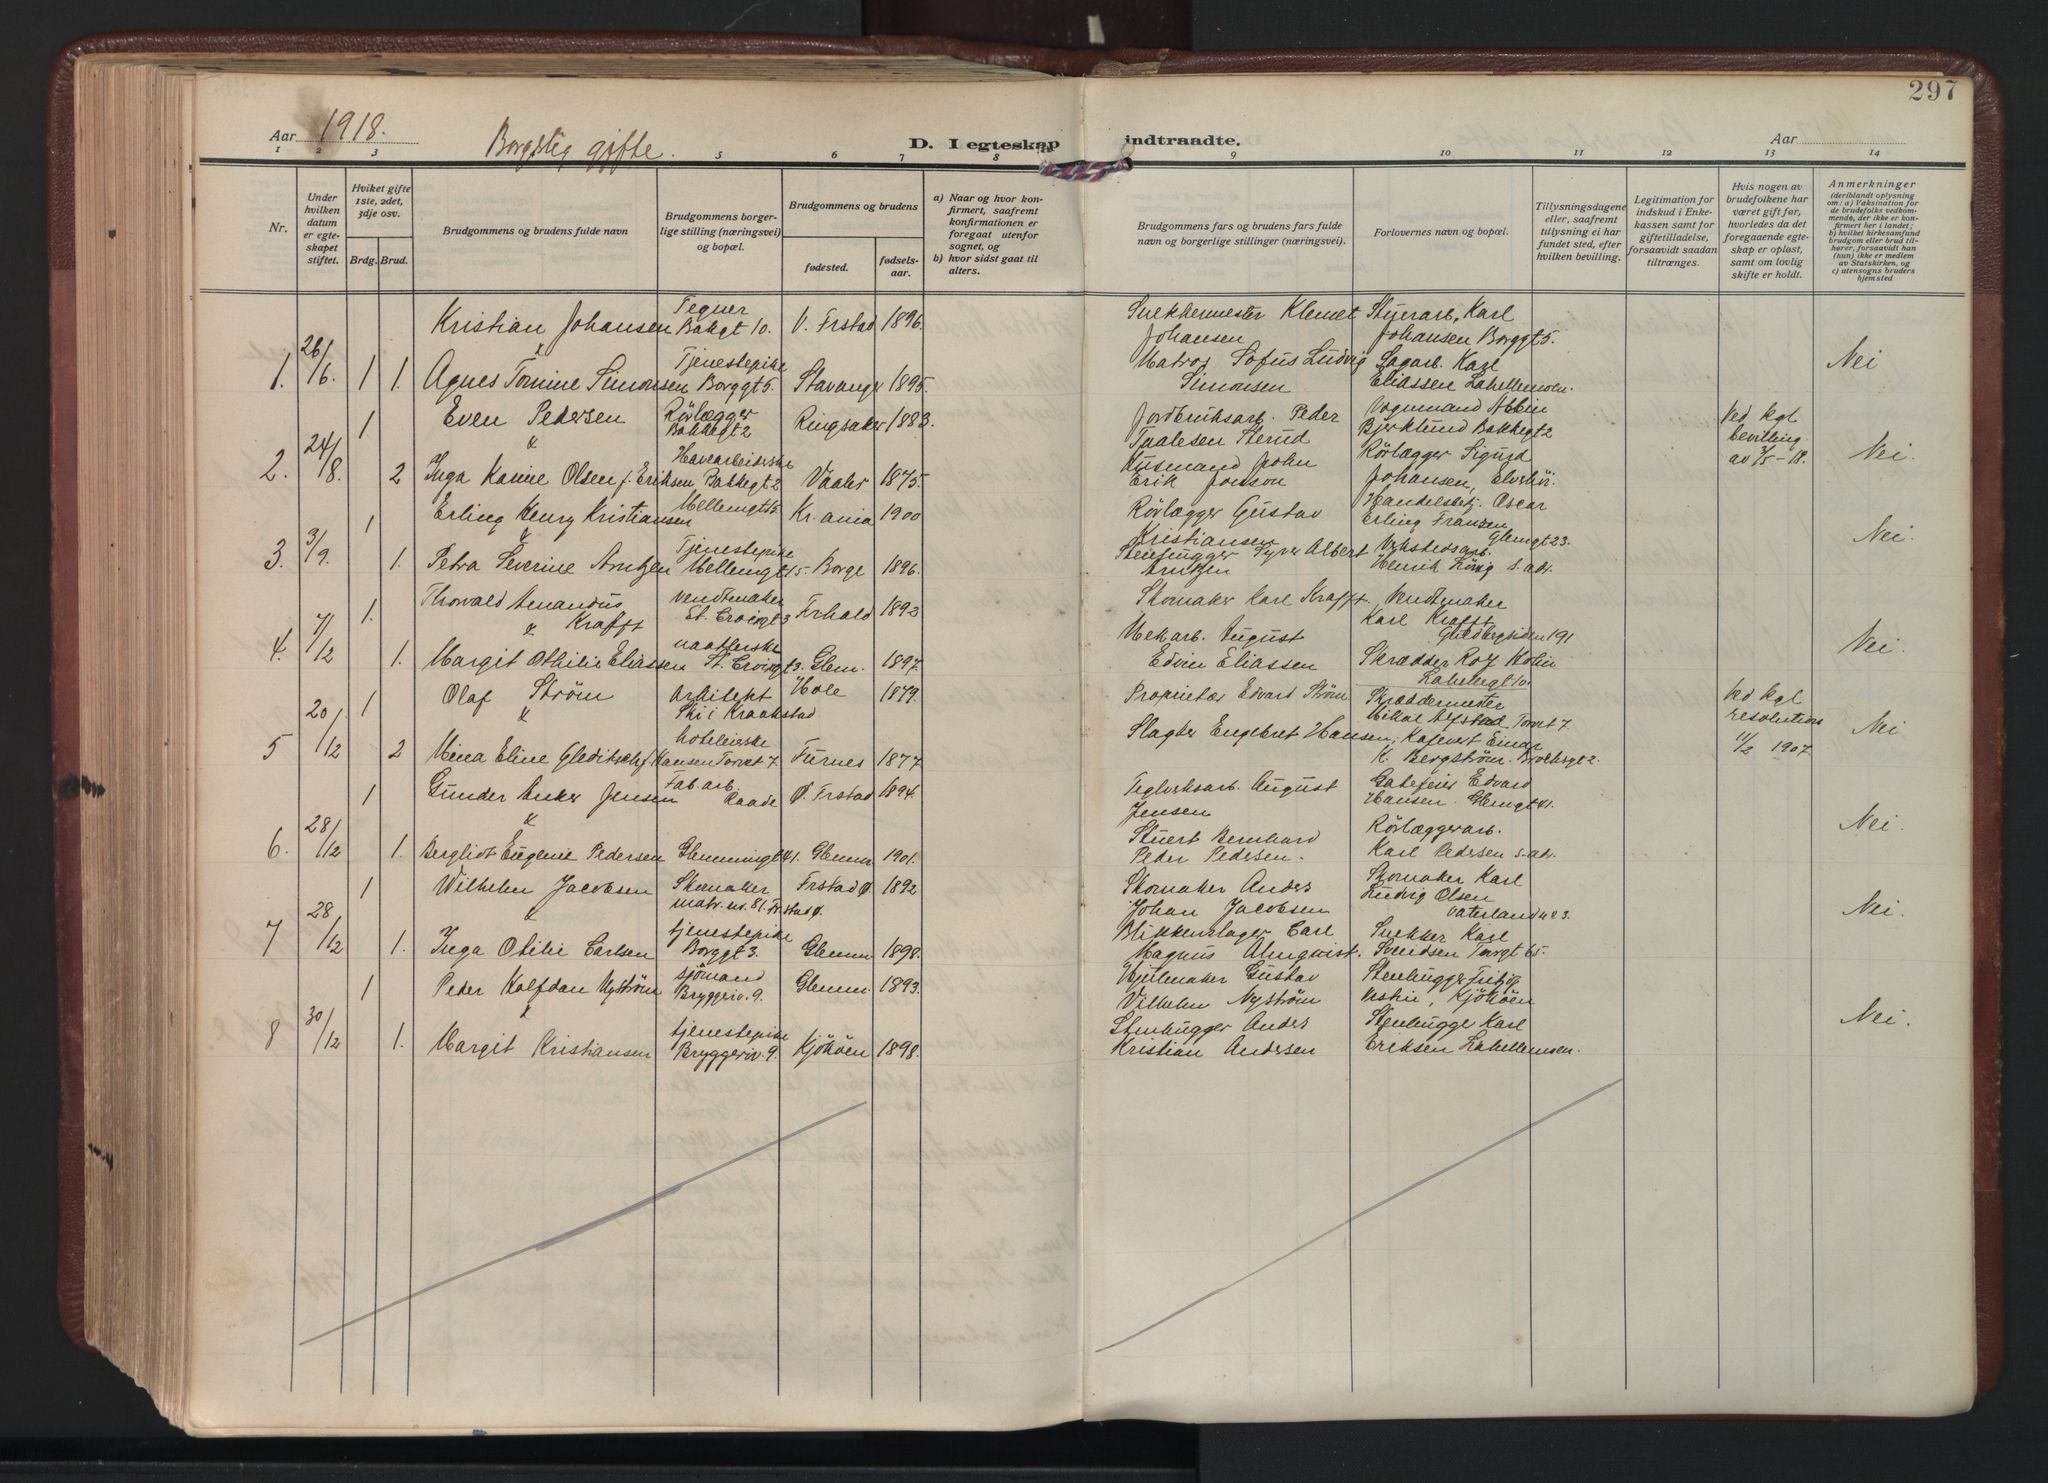 297
Aar 1918.
Borgelig gifte.
D. I egteskap indtraadte.
Aar
1 2 3 5 6 7 8 9 10 11 12 13 14
Nr.
Under hvilken datum er egteskapet stiftet.
Hviket gifte 1ste, 2det, 3dje osv.
Brdg. Brud.
Brudgommens og brudens fulde navn
Brudgommens borgerlige stilling (næringsvei) og bopæl.
Brudgommens og brudens
fødested.
fødselsaar.
a) Naar og hvor konfirmert, saafremt konfirmationen er foregaat utenfor sognet, og
b) hvor sidst gaat til alters.
Brudgommens fars og brudens fars fulde navn og borgerlige stillinger (næringsvei).
Forlovernes navn og bopæl.
Tillysningsdagene eller, saafremt tillysning ei har fundet sted, efter hvilken bevilling.
Legitimation for indskud i Enkekassen samt for giftetilladelse, forsaavidt saadan tiltrænges.
Hvis nogen av brudefolkene har været gift før, hvorledes da det foregaaende egteskap er opløst, samt om lovlig skifte er holdt.
Anmerkninger
(deriblandt oplysning om: a) Vaksination for de brudefolks vedkommende, der ikke er konfirmert her i landet; b) hvilket kirkesamfund brudgom eller brud tilhører, forsaavidt han (hun) ikke er medlem av Statskirken, og c) utensogns bruders hjemsted
Kristian Johansen Tegner Bakgt 10. V. Frstad 1896. Snekkermester Klemet Johansen Styrerarb. Karl Johansen Borggt 5.
1. 26/6. 1 1. Agnes Tomine Simonsen Tjenestepike Borggt 5. Stavanger 1895. Matros Sofus Ludvig Simonsen Sagarb. Karl Eliassen Lahellemoen. Nei
1 Even Pedersen Rörlægger Bakkegt 2 Ringsaker 1883. Jordbruksarb. Peder Paalesen Sterud Vognmand Albin Bjerklund Bakkegt 2 Ved kgl bevilling av 3/5-18.
2. 24/8. 2 Inga Karine Olsen f. Eriksen Havearbeiderske Bakkegt 2 Vaaler 1875. Husmand John Erik Jonson Rörlægger Sigurd Johansen, Elvehöi. Nei.
1 Erling Henry Kristiansen Mellemgt 5. Kr.ania 1900 Rörlægger Gustav Kristiansen Handelsbetj. Oscar Erling Fransen Glemgt 23.
3. 3/9. 1. Petra Severine Arntzen Tjenestepike Mellemgt 5. Borge 1896. Stenhugger Syver Albert Arntzen Verkstedsarb. Henrik Lövig s. ads. Nei.
1. Thorvald Amandus Krafft vendtmaker St. Croixgt 3 Frhald 1892 Skomaker Karl Krafft. Vendtmaker Karl Krafft Guldbergsiden 191
4. 7/12 1. Margit Othilie Eliassen naatlerske St. Croixgt 3. Glem. 1897. Mek arb. August Edvin Eliassen Skrædder Rolf Holm Nei.
1 Olaf Ström Arkitekt Ski i Kraakstad Hole 1879. Proprietær Edvard Ström Skræddermester Torvet 7. Ved kgl resolution 11/2 1907.
5 20/12 2 Mina Eline Gleditsch f. Hansen hoteleierske Torvet 7 Furnes 1877 Slagter Engebret Hansen, Kafevert Einar K. Bergström. Brochsgt 2. Nei
1 Gunder Anker Jensen Fab. arb. Raade Ö. Frstad 1894. Teglverksarb. August Jensen Gatefeier Edvard Hansen. Glemgt 41.
6. 28/12 1. Bergliot Eugenie Pedersen Glemmingt 41. Glemm 1901. Stuert Bernhard Peder Pedersen. Rörlæggerarb. Karl Pedersen s. ads. Nei.
1 Wilhelm Jacobsen Skomaker matr. nr. 81. Frstad Ö. Frstad Ö. 1892 Skomaker Anders Johan Jacobsen Skomaker Karl Ludvig Olsen Vaterland 423.
7 28/12 1. Inga Otilie Carlsen tjenestepike Borggt 3. Glemm. 1898. Blikkenslager Carl Magnus Almqvist. Snekker Karl Svendsen Torvgt 65. Nei.
1 Peder Halfdan Nyström sjömand Bryggeriv. 9. Glemm. 1893. Hjulmaker Gustav Vilhelm Nyström Stenhugger Fritjof Kjököen
8 30/12 1. Margit Kristiansen tjenestepike Bryggeriv. 9. Kjököen 1898. Stenhugger Anders Kristian Andersen Stenhugge Karl Eriksen Lahellemoen. Nei.